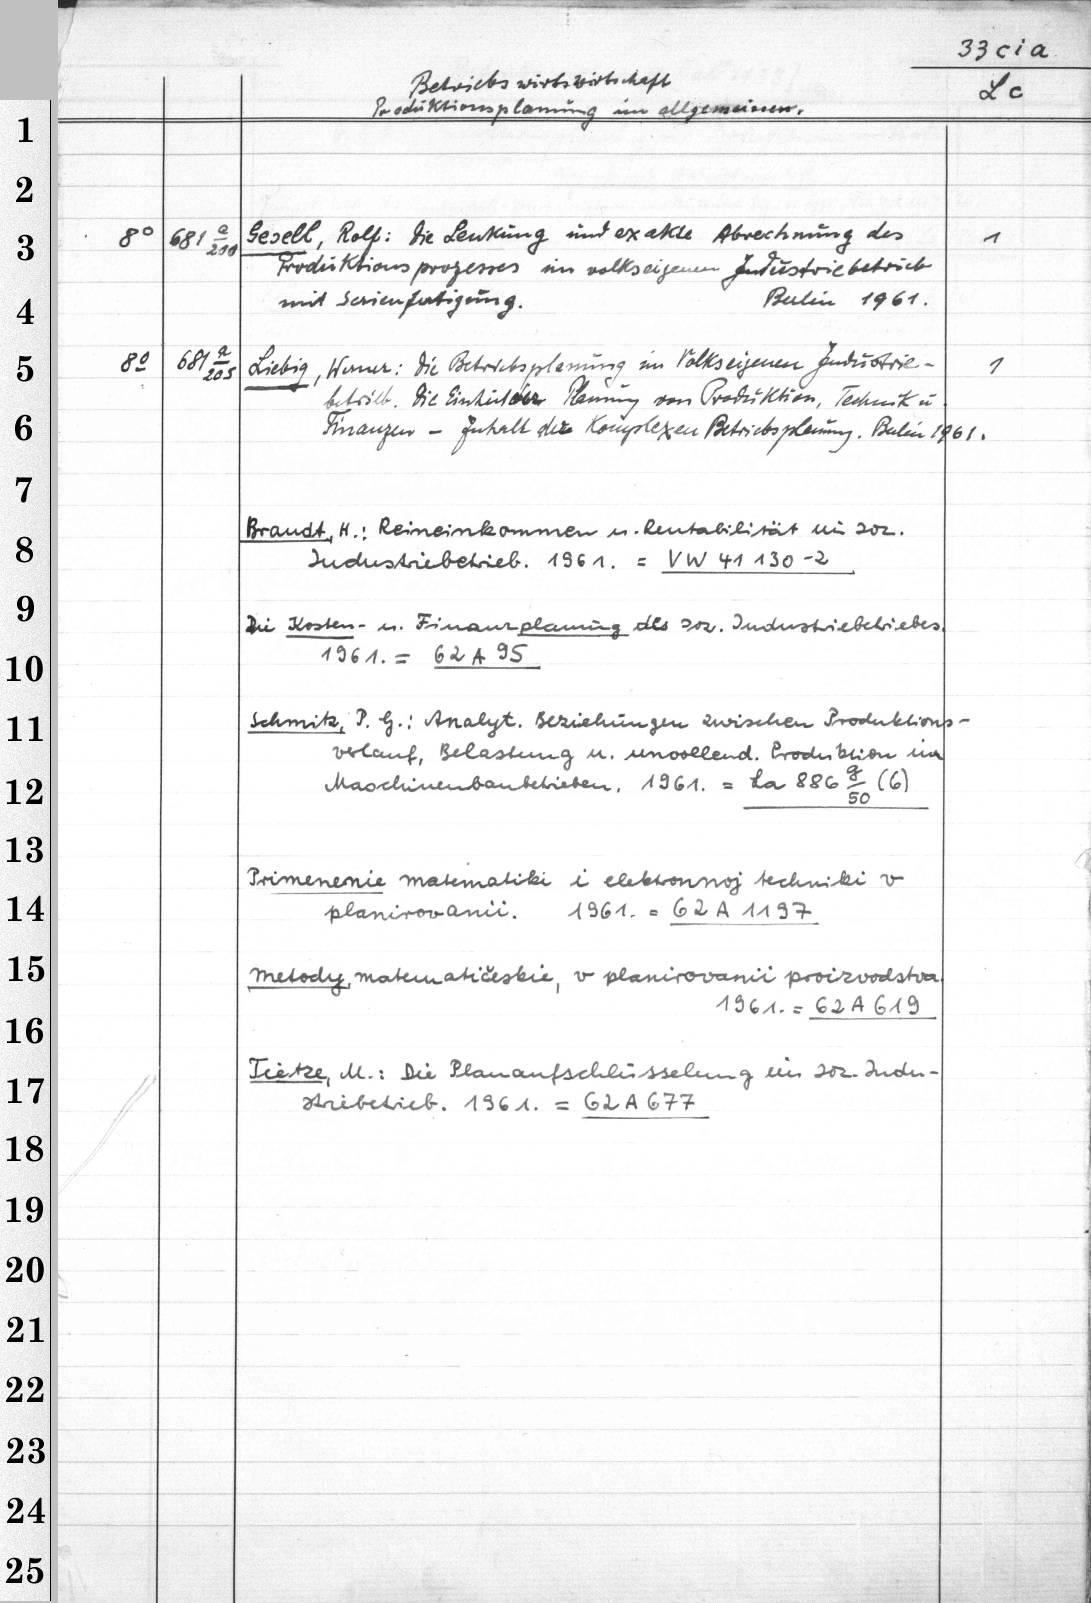 33 c i a
Lc
Betriebswirtswirtschaft
Produktionsplanung im allgemeinen.
1
2
3 8° 681 a/200 Gesell, Rolf: Die Lenkung und exakte Abrechnung des 1
Produktionsprozesses im volkseigenen Industriebetrieb
4 mit Serienfertigung. Berlin 1961.
5 8° 681 a/205 Liebig, Werner: Die Betriebsplanung im Volkseigenen Industrie- 1
betrieb. Die Einheit der Planung von Produktion, Technik u.
6 Finanzen - Inhalt der Komplexen Betriebsplanung. Berlin 1961.
7
Brandt, H.: Reineinkommen u. Rentabilität im soz.
8 Industriebetrieb. 1961. = VW 41 130-2
9 Die Kosten- u. Finanzplanung des soz. Industriebetriebes.
10 1961. = 62 A 95
11 Schmitz, P. G.: Analyt. Beziehungen zwischen Produktions-
verlauf, Belastung u. unvollend. Produktion in
12 Maschinenbaubetrieben. 1961. = La 886 g/50 (6)
13
Primenenie matematiki i elektronnoj techniki v
14 planirovanii. 1961. = 62 A 1197
15 Metody, matematičeskie, v planirovanii proizvodstva.
16 1961. = 62 A 619
17 Tietze, M.: Die Planaufschlüsselung im soz. Indu-
striebetrieb. 1961. = 62 A 677
18
19
20
21
22
23
24
25